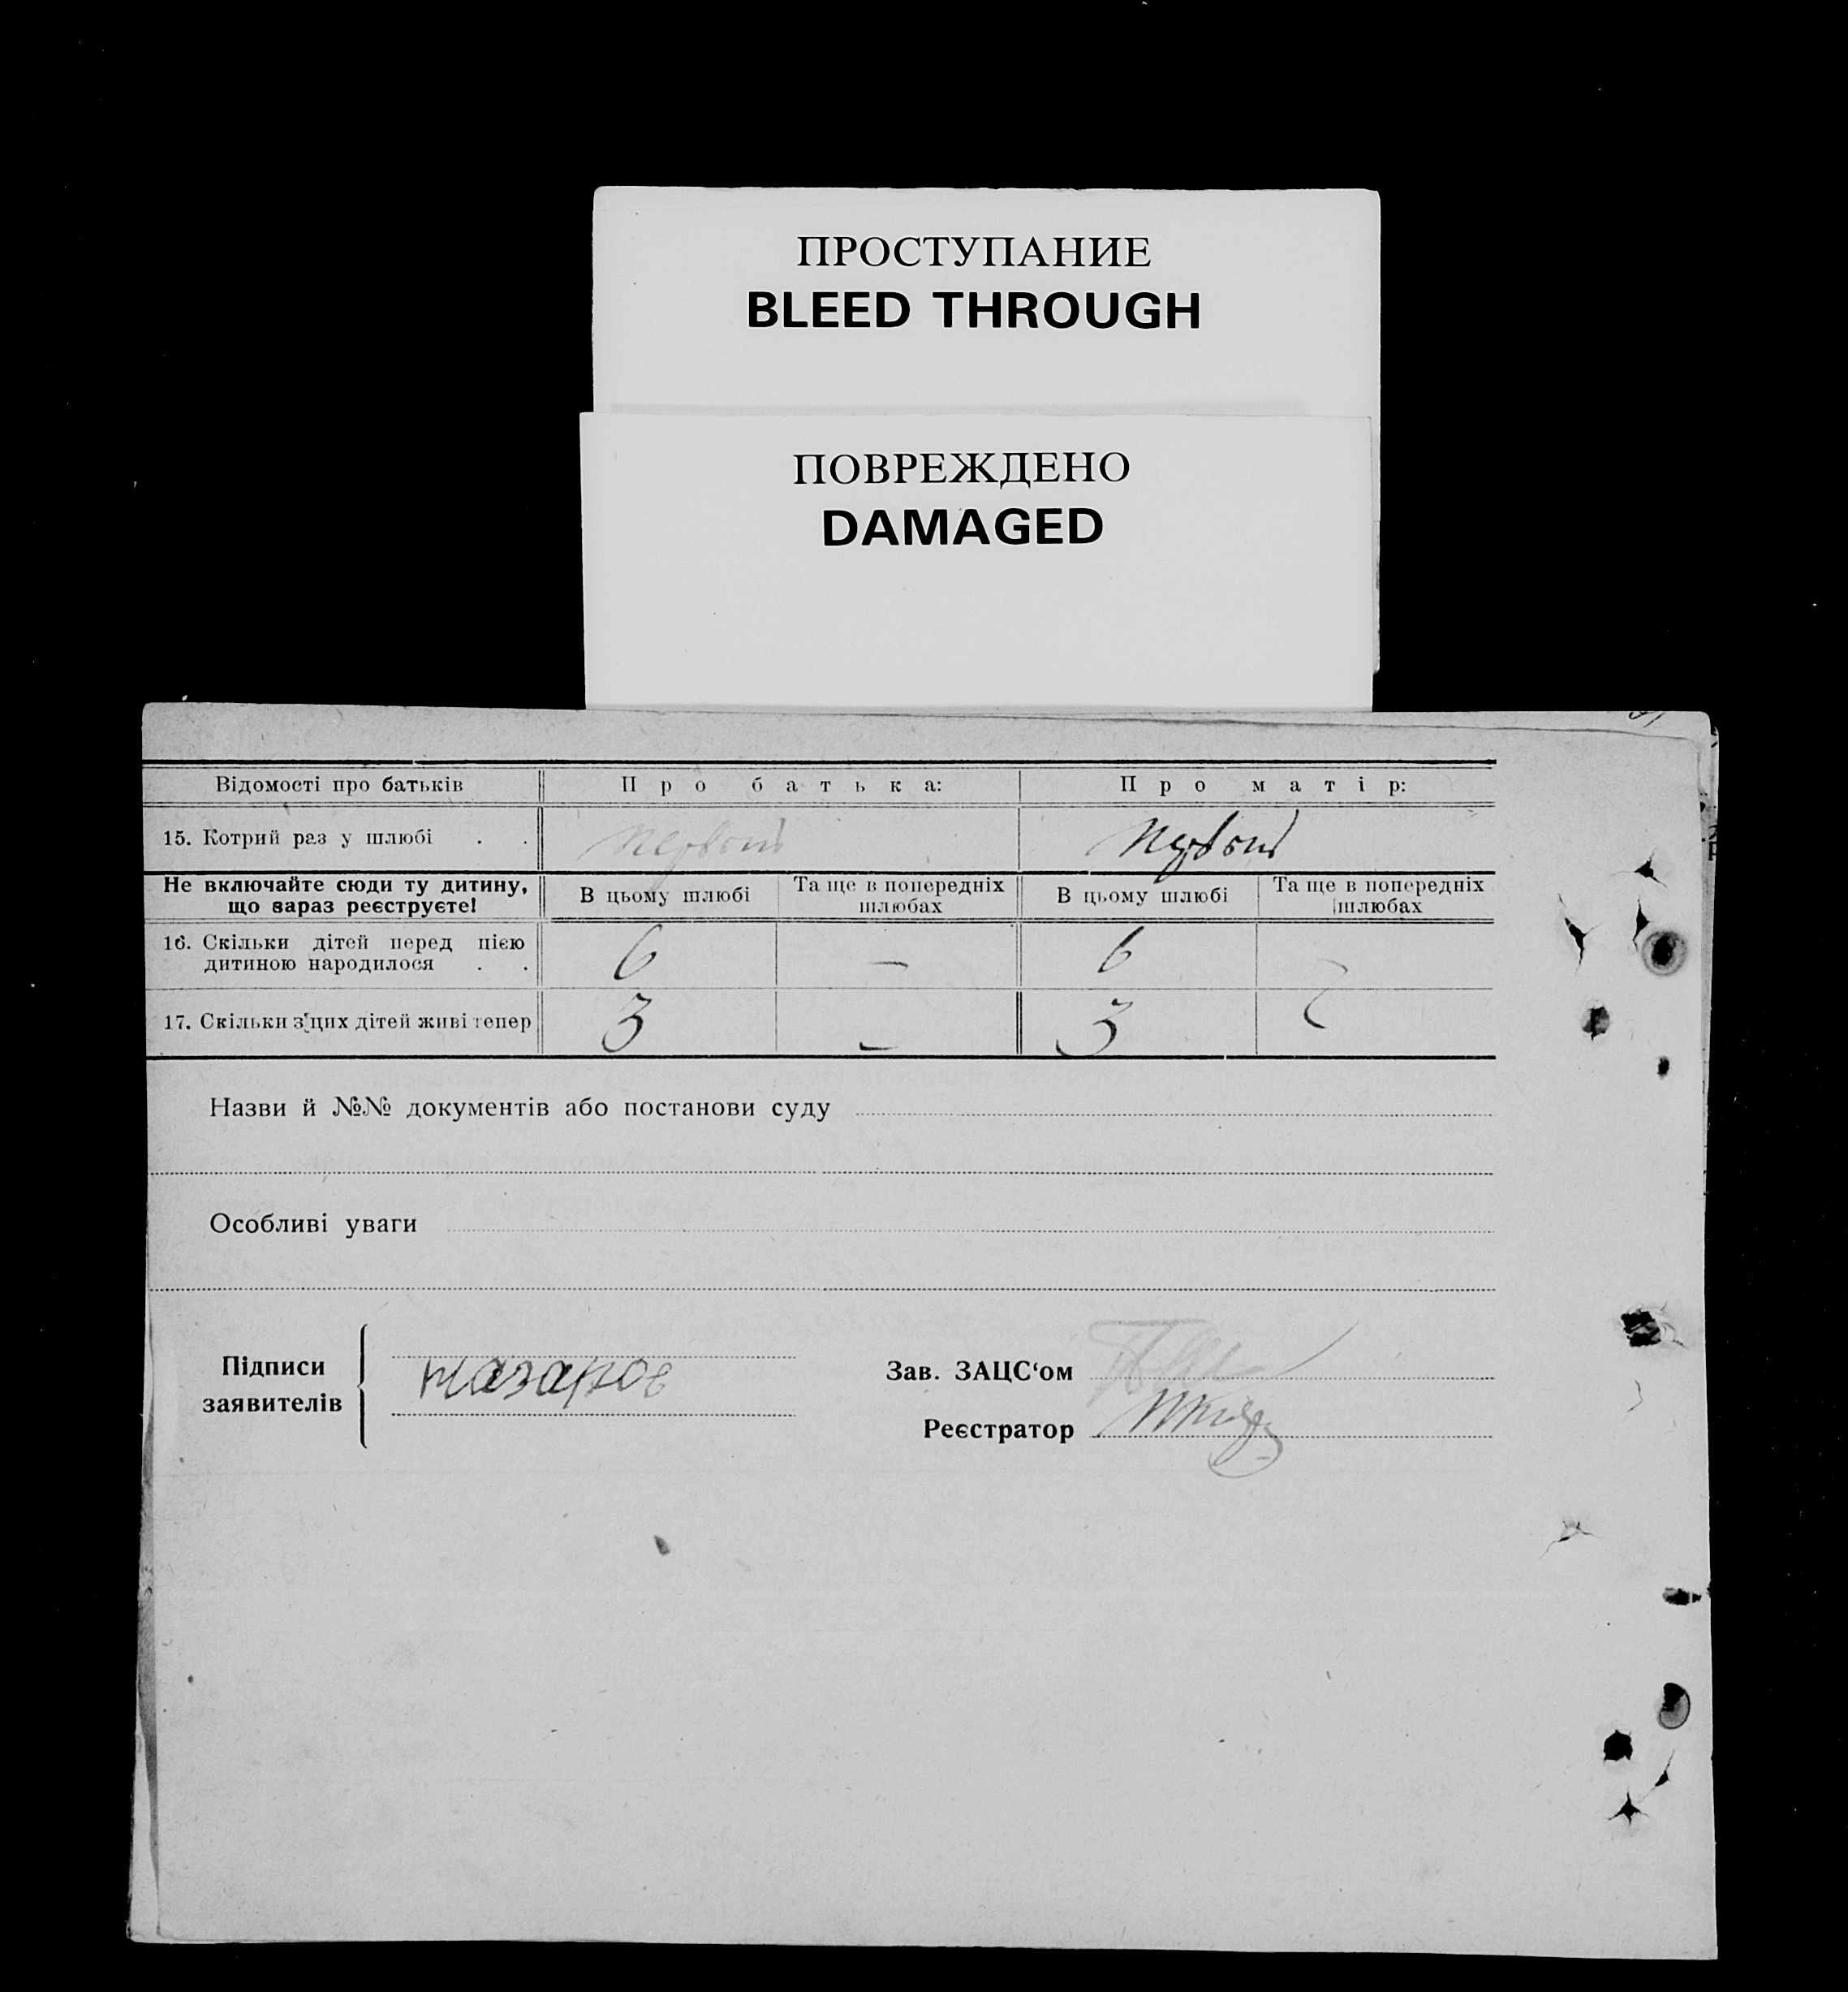 ПРОСТУПАНИЕ
BLEED THROUGH
ПОВРЕЖДЕНО
DAMAGED
Відомості про батьків Про батька: Про матір:
15. Котрий раз у шлюбі . . первый первый
Не включайте сюди ту дитину, що зараз реєструєте! В цьому шлюбі Та ще в попередніх шлюбах В цьому шлюбі Та ще в попередніх шлюбах
16. Скільки дітей перед цією
дитиною народилося . . 6 — 6
17. Скільки з цих дітей живі тепер 3 — 3
Назви й №№ документів або постанови суду
Особливі уваги
Підписи
заявителів
Назаров
Зав. ЗАЦС‘ом
Реєстратор